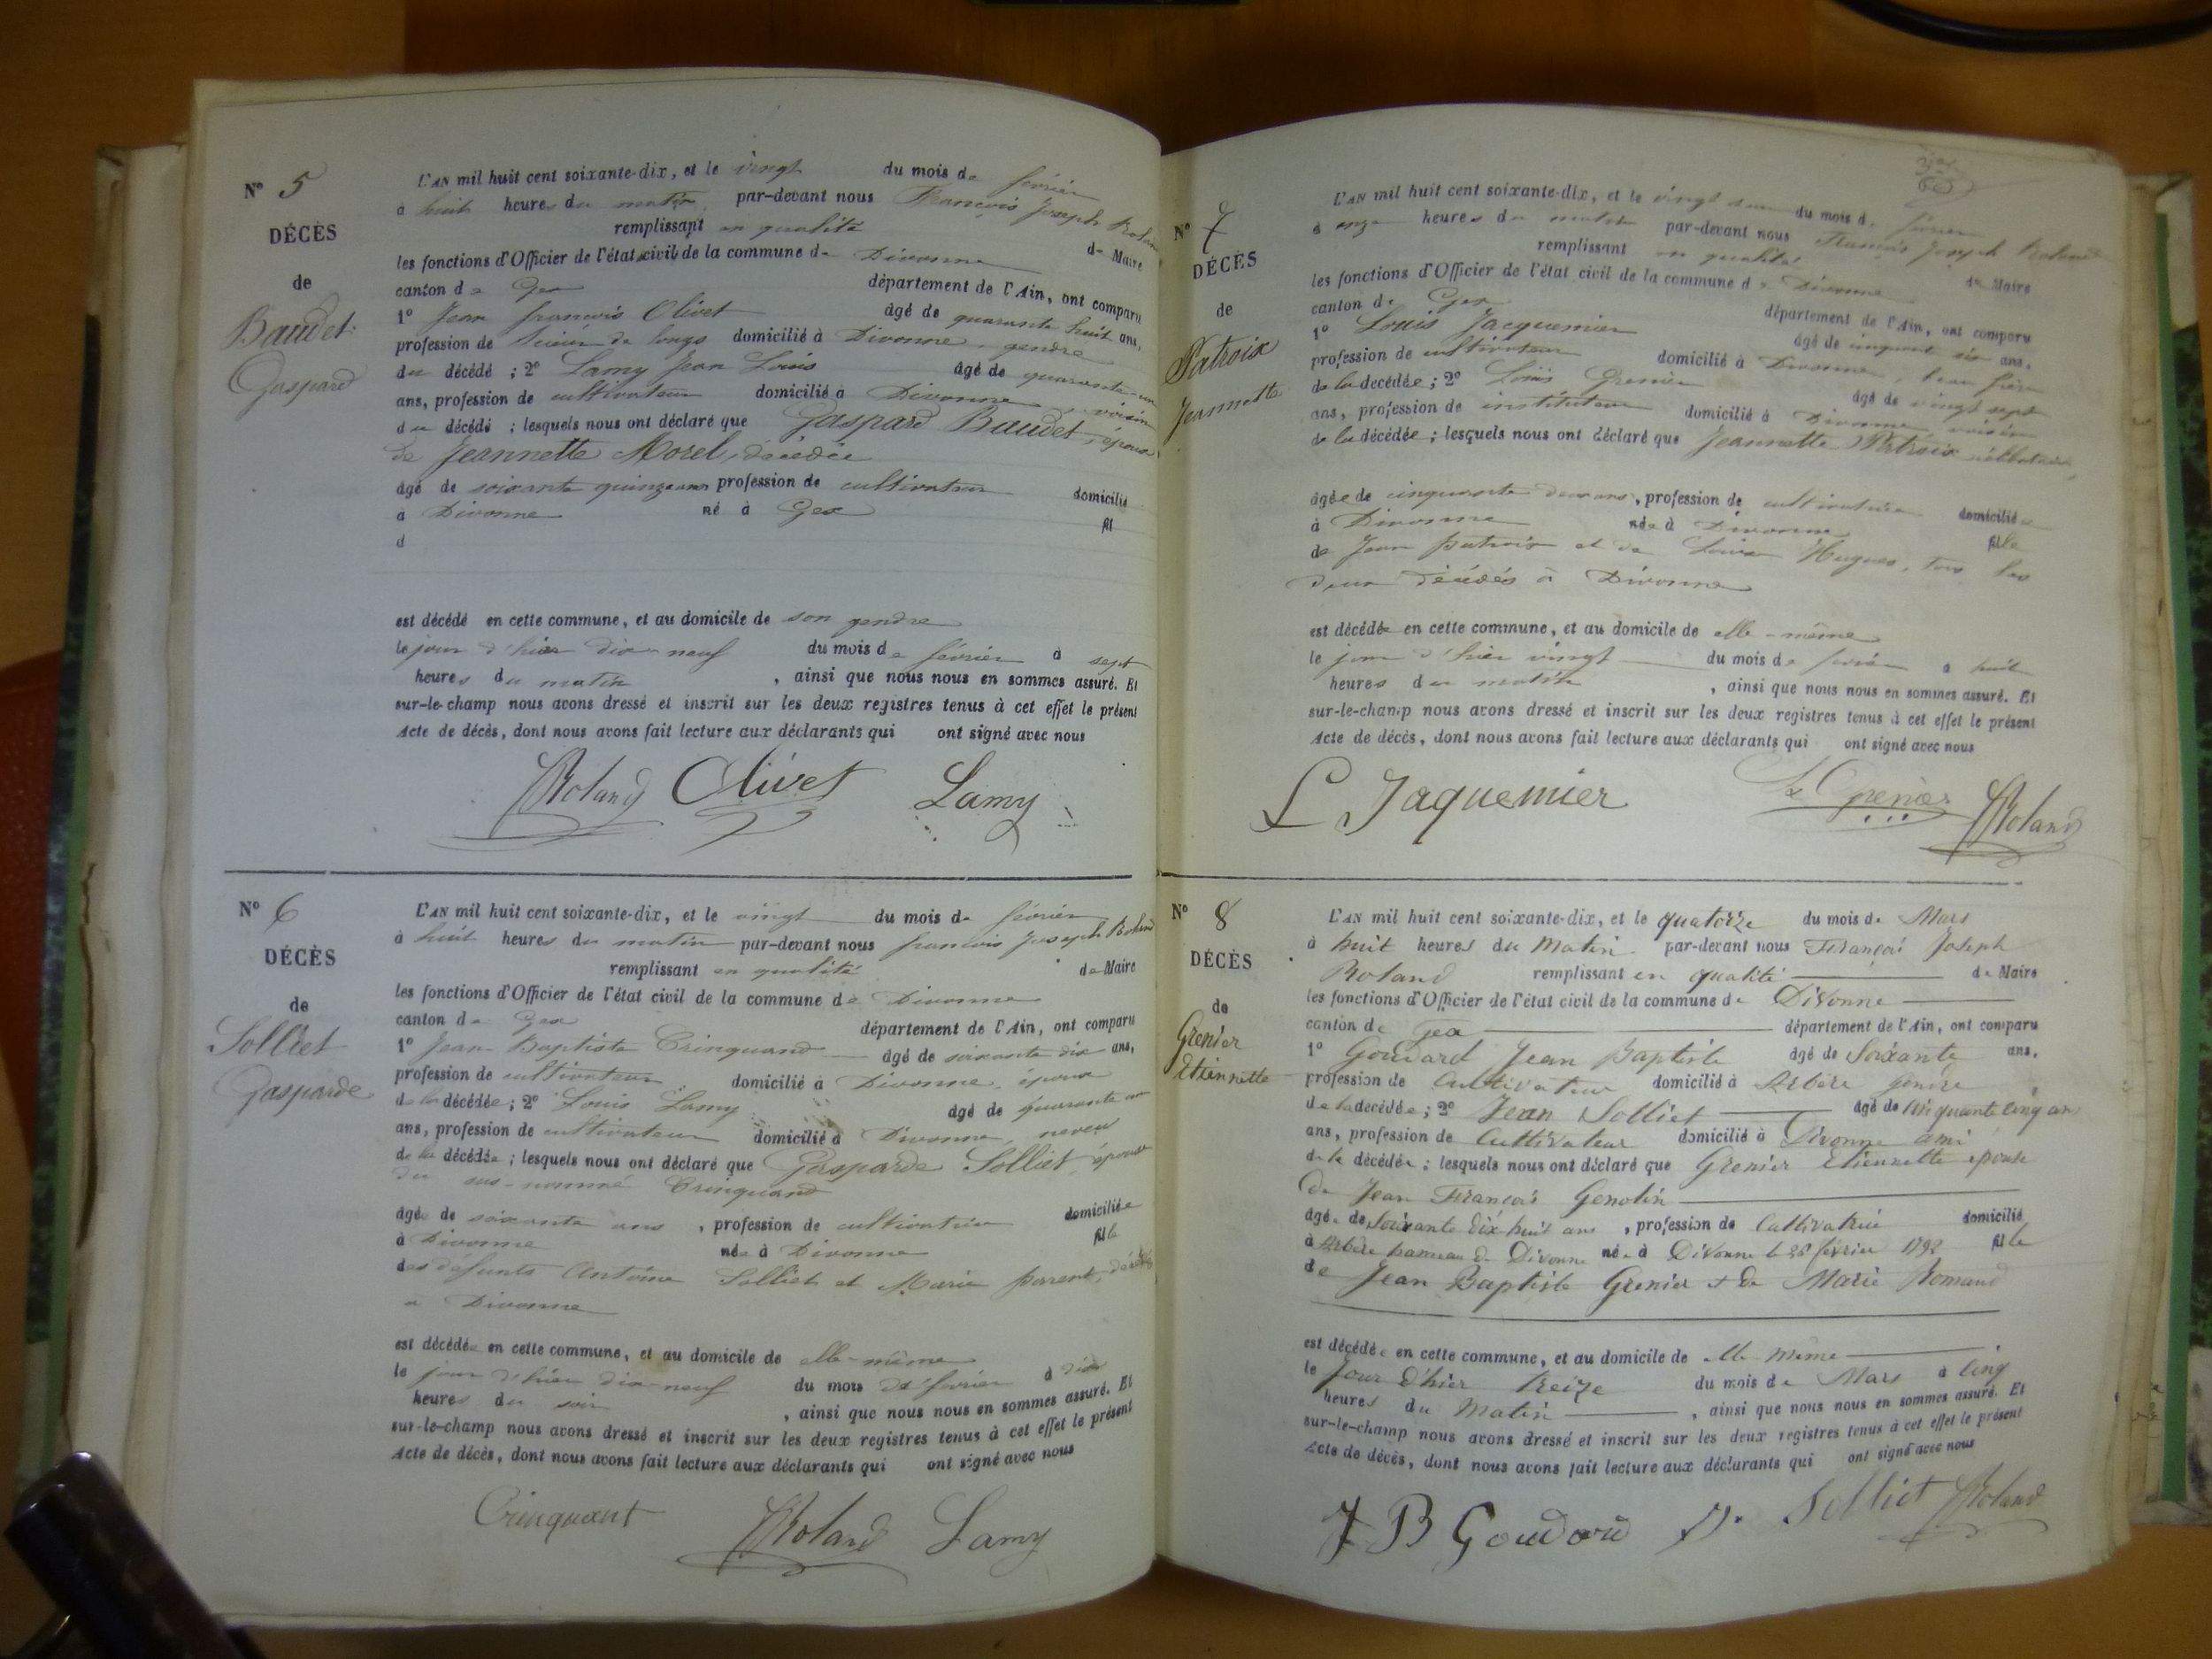 N° 5
DÉCÈS
de
Baudet
Gaspard
L'AN mil huit cent soixante-dix, et le vingt du mois de février
a huit heures du matin par-devant nous François Joseph Roland
remplissant en qualité de Maire
les fonctions d'Officier de l'état civil de la commune de Divonne
canton de Gex département de l'Ain, ont comparu
1° Jean françois Olivet âgé de quarante huit ans,
profession de scieur de longs domicilié à Divonne, gendre
du décédé ; 2° Lamy Jean Louis âgé de quarante un
ans, profession de cultivateur domicilié à Divonne, voisin
du décédé ; lesquels nous ont déclaré que Gaspard Baudet, époux
de Jeannette Morel, décédée
âgé de soixante quinze ans profession de cultivateur domicilié
a Divonne né à Gex fil
d
est décédé en cette commune, et au domicile de son gendre
le jour d'hier dix-neuf du mois de février à sept
heures du matin, ainsi que nous nous en sommes assuré. Et
sur-le-champ nous avons dressé et inscrit sur les deux registres tenus à cet effet le présent
Acte de décès, dont nous avons fait lecture aux déclarants qui ont signé avec nous
Roland Olivet Lamy
N° 6
DÉCÈS
de
Solliet
Gasparde
L'AN mil huit cent soixante-dix, et le vingt du mois de février
à huit heures du matin par-devant nous françois Joseph Roland
remplissant en qualité de Maire
les fonctions d'Officier de l'état civil de la commune de Divonne
canton de Gex département de l'Ain, ont comparu
1° Jean Baptiste Crinquand âgé de soixante dix ans,
profession de cultivateur domicilié à Divonne, époux
de la décédée ; 2° Louis Lamy âgé de quarante un
ans, profession de cultivateur domicilié à Divonne, neveu
de la décédée ; lesquels nous ont déclaré que Gasparde Solliet, épouse
du sus-nommé Crinquand
âgée de soixante ans, profession de cultivatrice domiciliée
à Divonne née à Divonne fille
des défunts Antoine Solliet et Marie parent, décédés
a Divonne
est décédée en cette commune, et au domicile de elle-même
le jour d'hier dix-neuf du mois de février à dix
heures du soir, ainsi que nous nous en sommes assuré. Et
sur-le-champ nous avons dressé et inscrit sur les deux registres tenus à cet effet le présent
Acte de décès, dont nous avons fait lecture aux déclarants qui ont signé avec nous
Crinquant Roland Lamy
N° 7
DÉCÈS
de
Patroix
Jeannette
L'AN mil huit cent soixante-dix, et le vingt du mois de février
à onze heures du matin par-devant nous François Joseph Roland
remplissant en qualité de Maire
les fonctions d'Officier de l'état civil de la commune de Divonne
canton de Gex département de l'Ain, ont comparu
1° Louis Jacquemier âgé de cinquante six ans,
profession de cultivateur domicilié à Divonne, beau frère
de la décédée ; 2° Louis Grenier âgé de vingt sept
ans, profession de instituteur domicilié à Divonne, voisin
de la décédée ; lesquels nous ont déclaré que Jeannette Patroix célibataire,
âgée de cinquante deux ans, profession de cultivatrice domiciliée
à Divonne née à Divonne fille
de Jean patroix et de Louise Hugues, tous les
deux décédés à Divonne
est décédée en cette commune, et au domicile de elle-même
le jour d'hier vingt du mois de février a huit
heures du matin, ainsi que nous nous en sommes assuré. Et
sur-le-champ nous avons dressé et inscrit sur les deux registres tenus à cet effet le présent
Acte de décès, dont nous avons fait lecture aux déclarants qui ont signé avec nous
L Jaquemier Ls Grenier Roland
N° 8
DÉCÈS
de
Grenier
Etiennette
L'AN mil huit cent soixante-dix, et le quatorze du mois de Mars
à huit heures du Matin par-devant nous François Joseph
Roland remplissant en qualité de Maire
les fonctions d'Officier de l'état civil de la commune de Divonne
canton de Gex département de l'Ain, ont comparu
1° Goudard Jean Baptiste âgé de Soixante ans,
profession de Cultivateur domicilié à Arbère gendre
de la décédée ; 2° Jean Solliet âgé de Cinquante cinq ans
ans, profession de Cultivateur domicilié à Divonne ami
de la décédée ; lesquels nous ont déclaré que Grenier Etiennette épouse
De Jean François Genolin
âgée de Soixante dix huit ans, profession de Cultivatrice domicilié
à Arbère hameau de Divonne née à Divonne le 28 février 1792 fille
de Jean Baptiste Grenier et de Marie Romand
est décédée en cette commune, et au domicile de elle même
le Jour d'hier treize du mois de Mars à Cinq
heures du Matin, ainsi que nous nous en sommes assuré. Et
sur-le-champ nous avons dressé et inscrit sur les deux registres tenus à cet effet le présent
Acte de décès, dont nous avons fait lecture aux déclarants qui ont signé avec nous
J B Goudard Solliet Roland